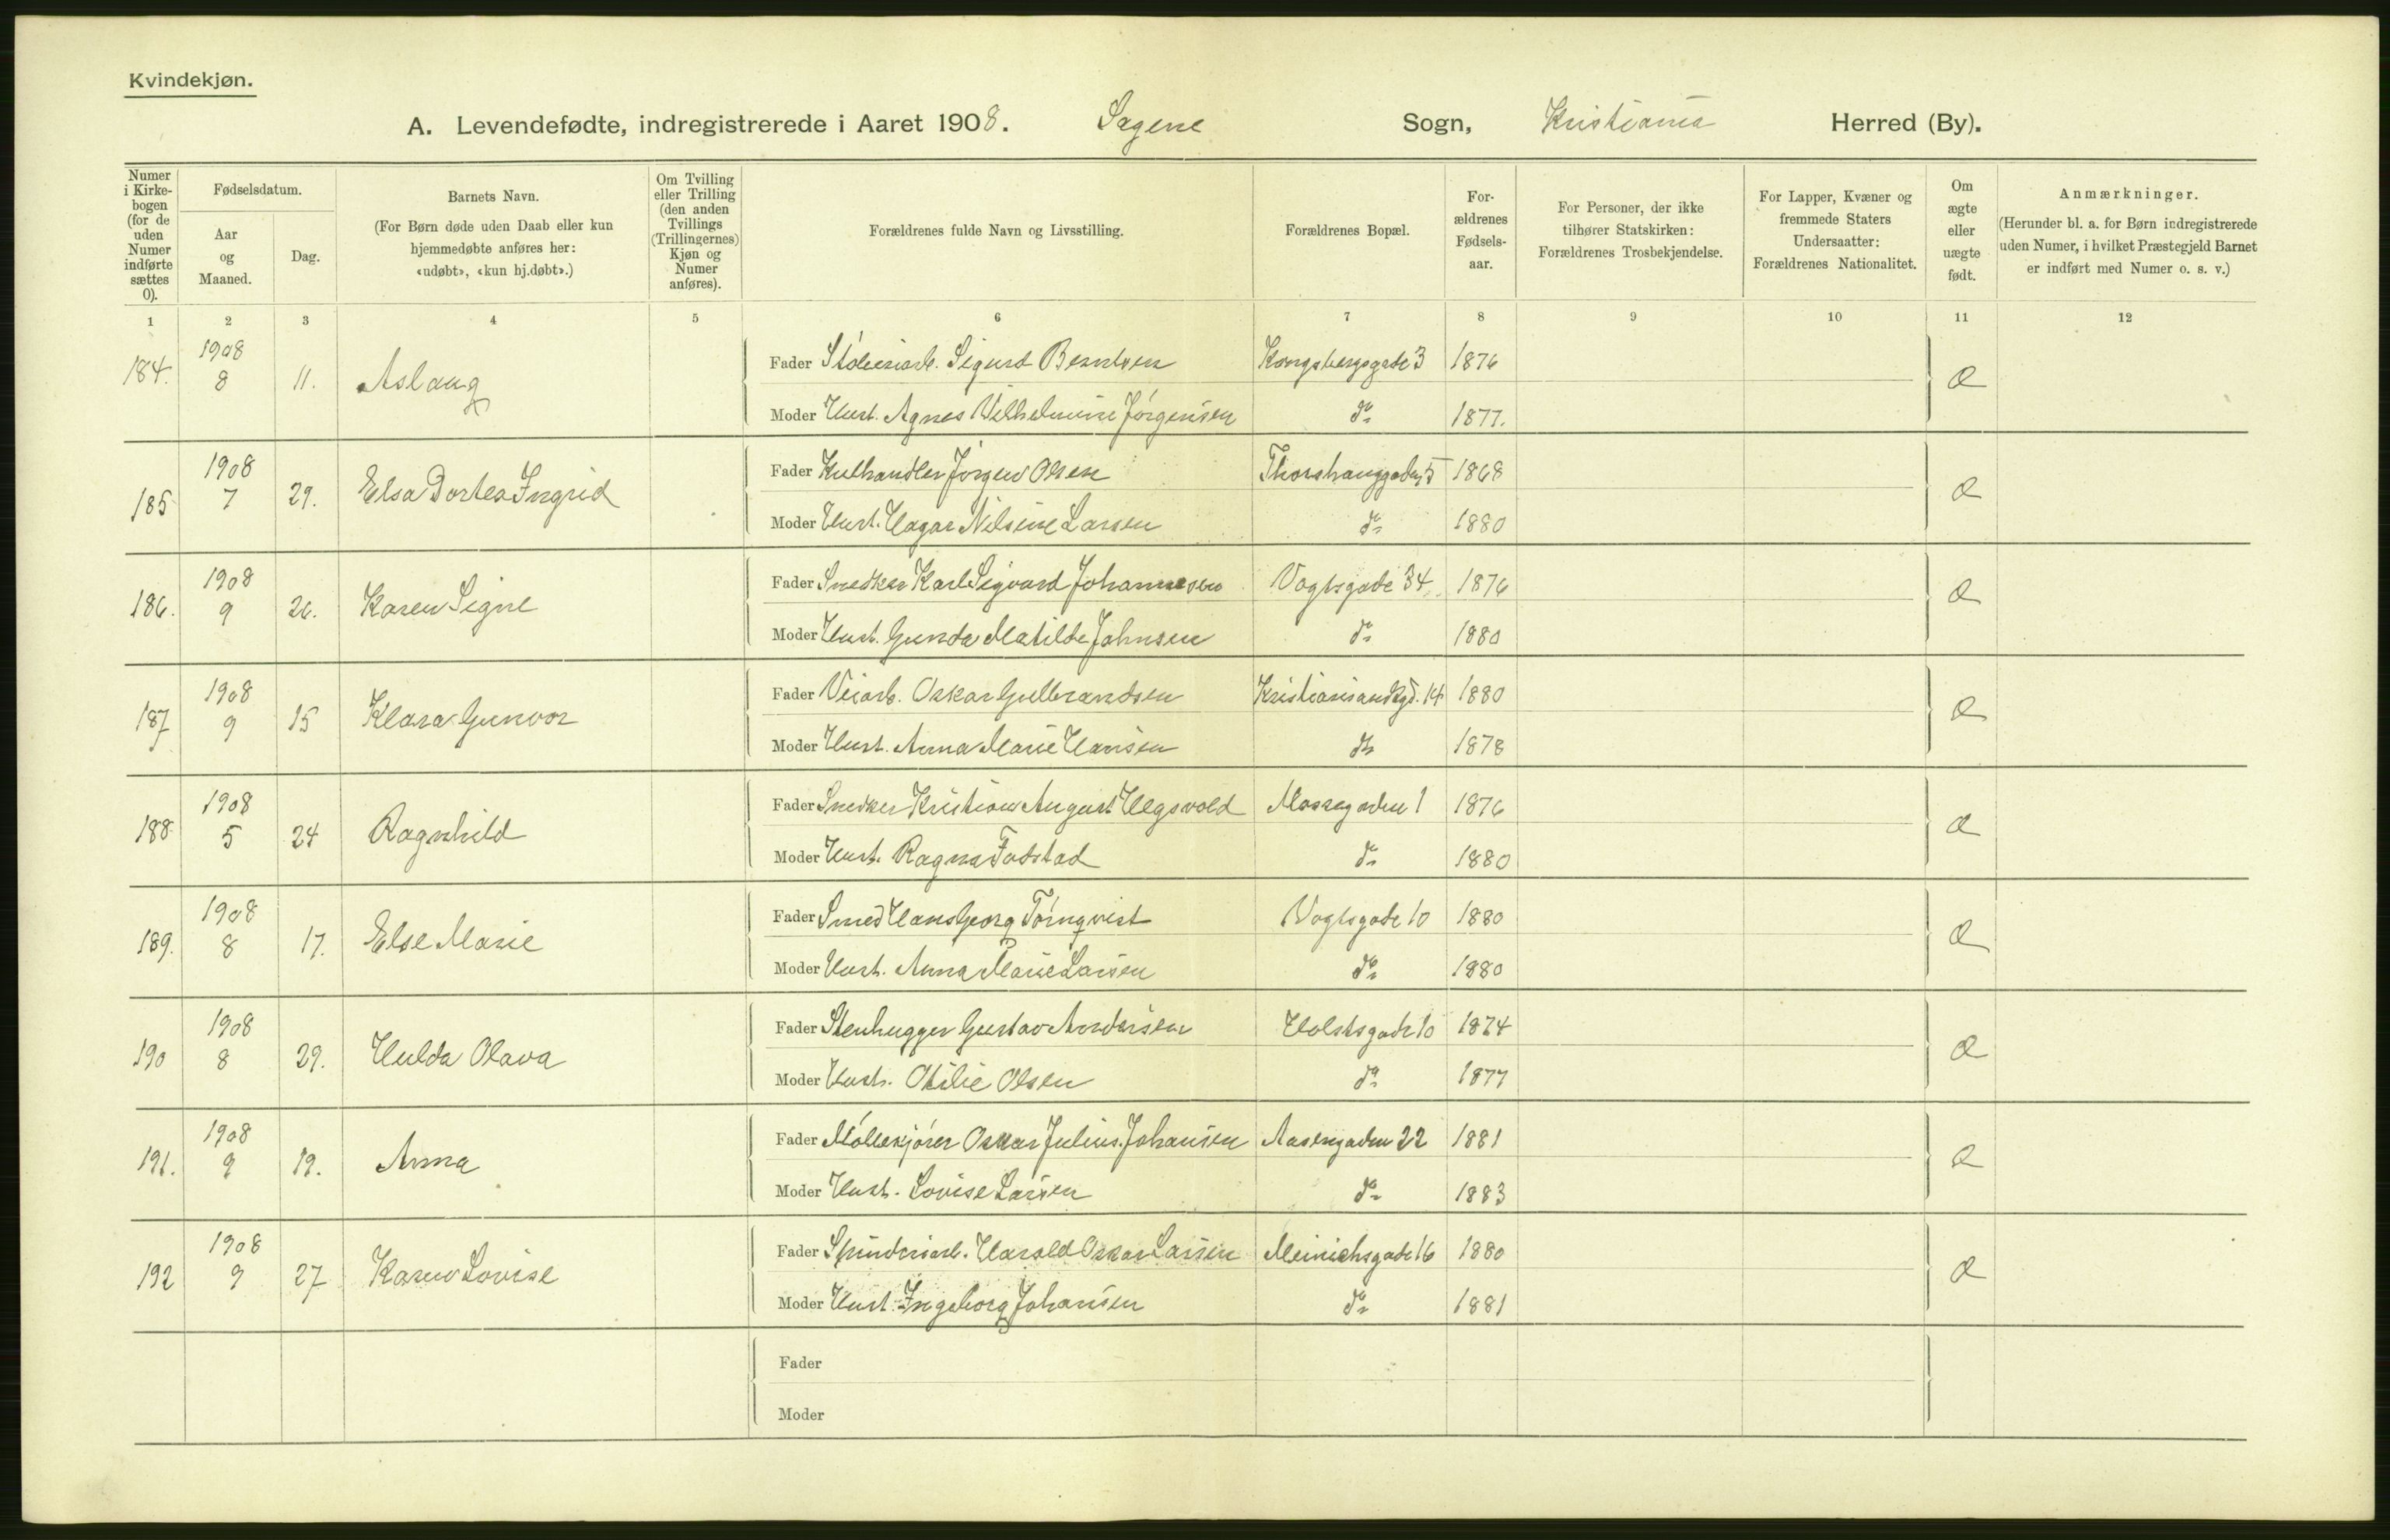 Kvindekjøn.
A. Levendefødte, indregistrerede i Aaret 1908. Sagene Sogn, Kristiania Herred (By).
Numer i Kirkebogen (for de uden Numer indførte sættes 0).
Fødselsdatum.
Aar og Maaned.
Dag.
Barnets Navn.
(For Børn døde uden Daab eller kun hjemmedøbte anføres her: «udøbt», «kun hj.døbt».)
Om Tvilling eller Trilling (den anden Tvillings (Trillingernes) Kjøn og Numer anføres).
Forældrenes fulde Navn og Livsstilling.
Forældrenes Bopæl.
Forældrenes Fødselsaar.
For Personer, der ikke tilhører Statskirken: Forældrenes Trosbekjendelse.
For Lapper, Kvæner og fremmede Staters Undersaatter: Forældrenes Nationalitet.
Om ægte eller uægte født.
Anmærkninger.
(Herunder bl. a. for Børn indregistrerede uden Numer, i hvilket Præstegjeld Barnet er indført med Numer o. s. v.)
1 2 3 4 5 6 7 8 9 10 11 12
184. 1908 8 11. Aslaug Æ
Fader Støberiarb. Sigurd Berntsen Kongsbergsgade 3 1876
Moder Hust. Agnes Wilhelmine Jørgensen do 1877.
185 1908 7 29. Elsa Dortea Ingrid Æ
Fader Kulhandler Jørgen Olsen Thorshauggaden 5 1868
Moder Hust. Hagar Nilsine Larsen do 1880
186. 1908 9 26. Karen Signe Æ
Fader Snedker Karl Sigvard Johannesen Vogtsgade 34 1876
Moder Hust. Gunda Matilde Johnsen do 1880
187 1908 9 15 Klara Gunvor Æ
Fader Veiarb. Oskar Gulbrandsen Kristiansandsgd. 14 1880
Moder Hust. Anna Marie Hansen do 1878
188 1908 5 24 Ragnhild Æ
Fader Snedker Kristian August Hegsvold Mossegaden 1 1876
Moder Hust. Ragna Fadstad do 1880
189. 1908 8 17. Else Marie Æ
Fader Smed Hans Georg Törnqvist Vogtsgade 10 1880
Moder Hust. Anna Marie Larsen do 1880
190 1908 8 29. Hulda Olava Æ
Fader Stenhugger Gustav Andersen Holstsgade 10 1874
Moder Hust. Otilie Olsen do 1877
191. 1908 9 19. Anna Æ
Fader Møllekjører Oskar Julius Johansen Aasengaden 22 1881
Moder Hust. Lovise Larsen do 1883
192 1908 9 27 Karen Lovise Æ
Fader Spinderiarb. Harald Oskar Larsen Meinichsgade 16 1880
Moder Hust. Ingeborg Johansen do 1881
Fader
Moder